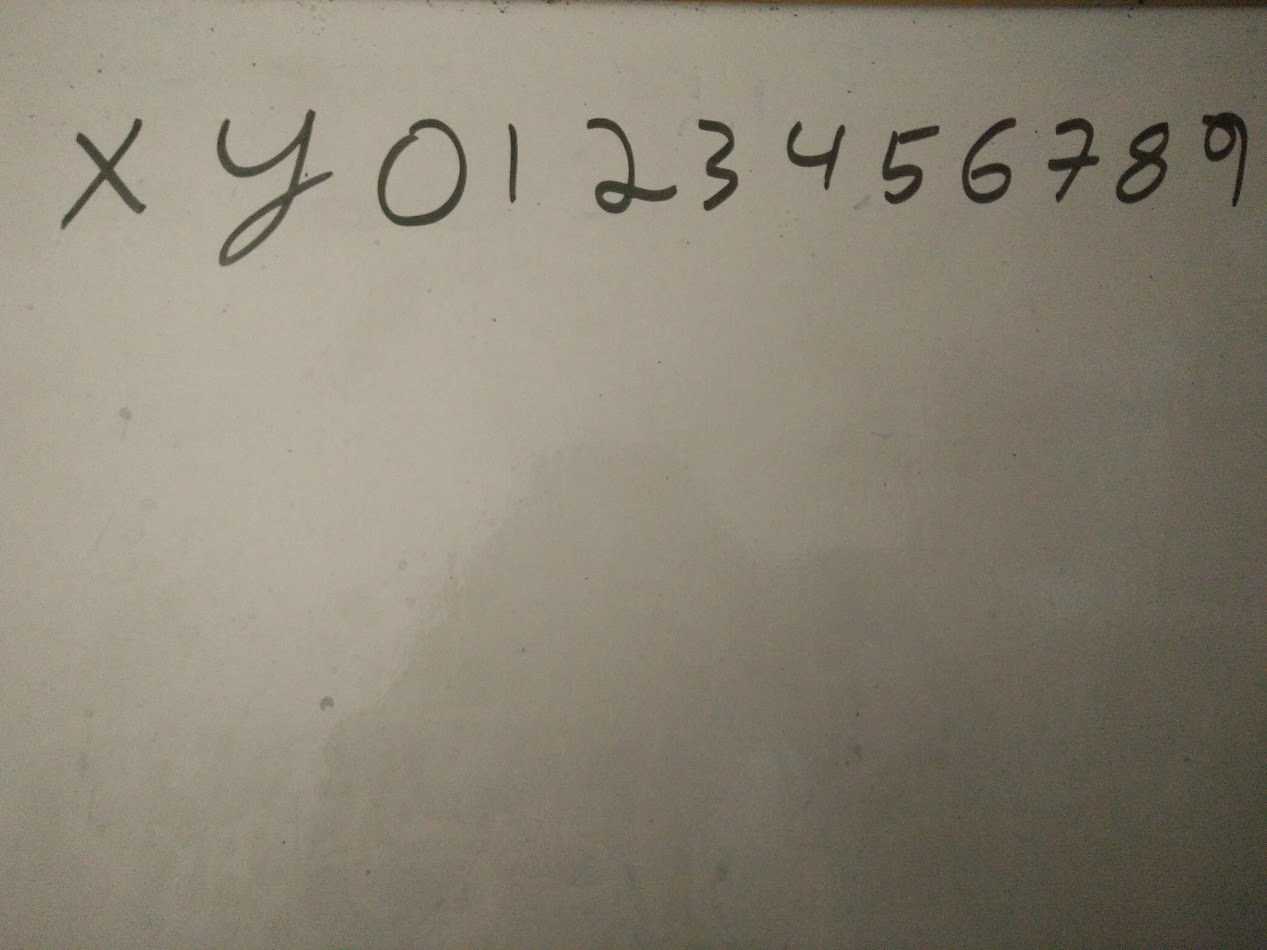 x y 0 1 2 3 4 5 6 7 8 9